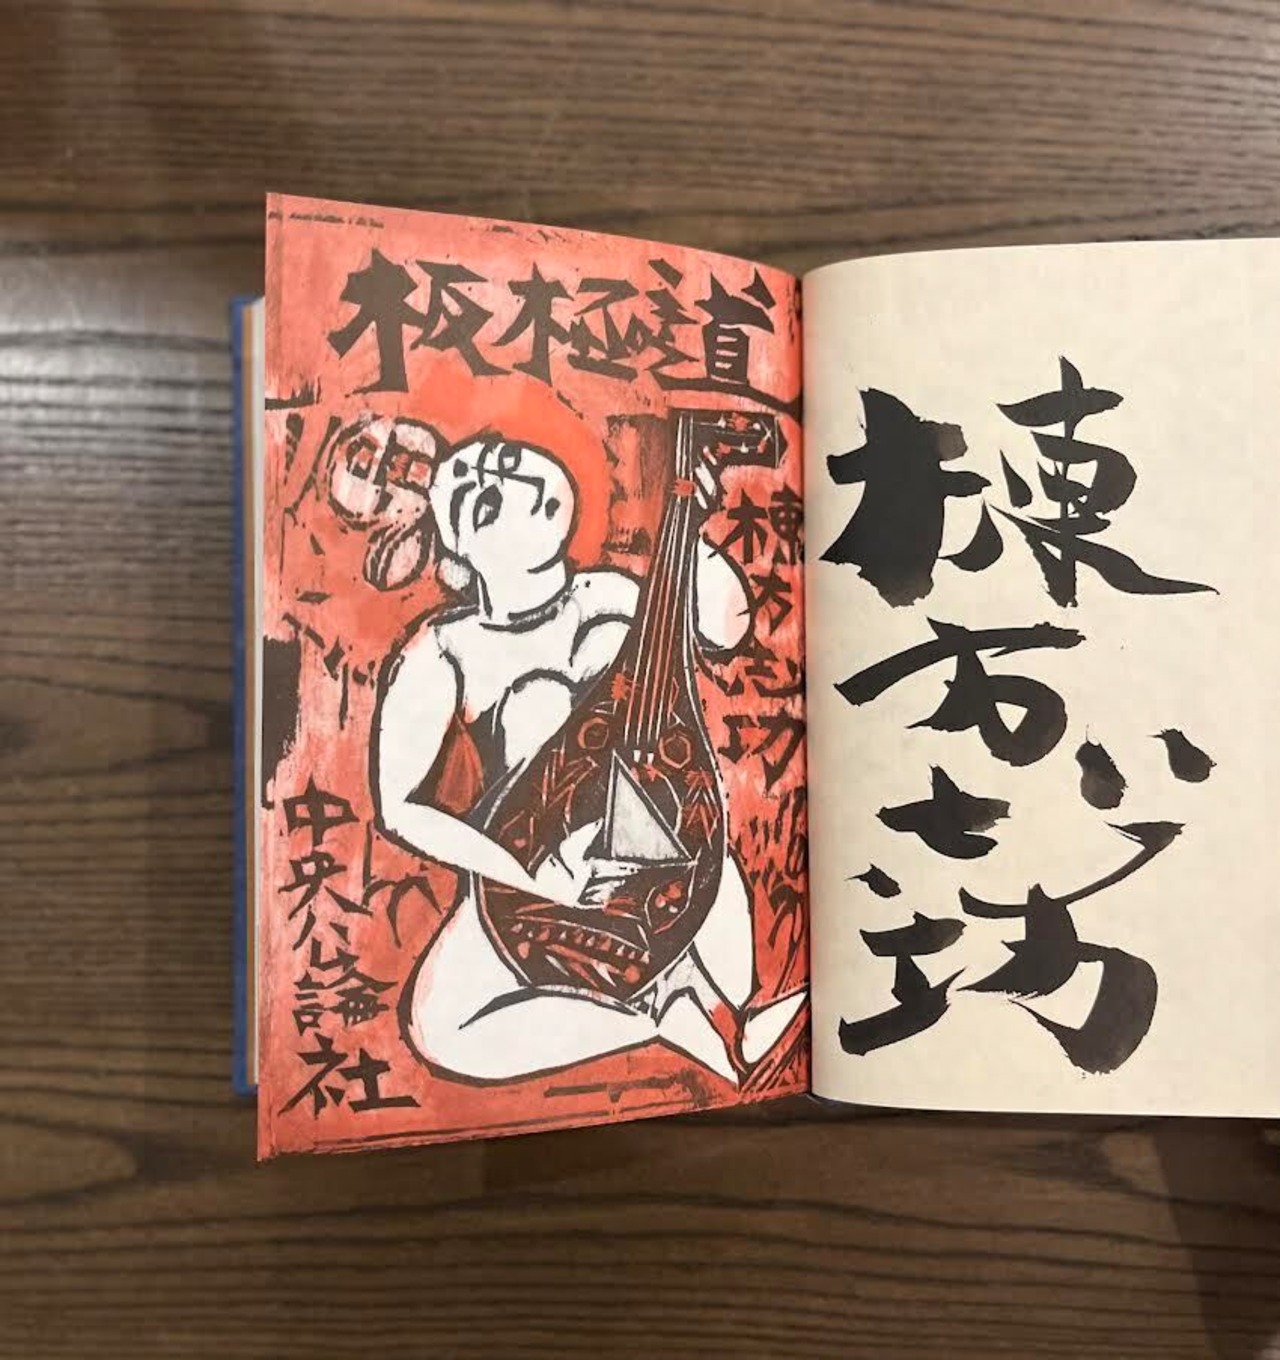 板極道
棟方志功
中央公論社
棟方志功